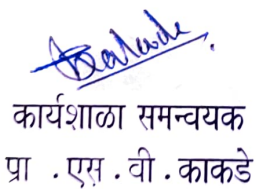 कार्यशाळा समन्वयक
प्रा . एस . वी . काकडे